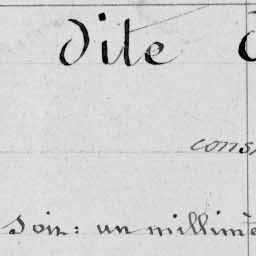 dite
cons
soit: un millimè